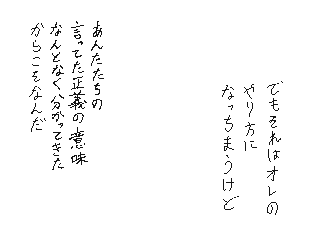 でもそれはオレの
やり方に
なっちまうけど
あんたたちの
言ってた正義の意味
なんとなく分かってきた
からこそなんだ